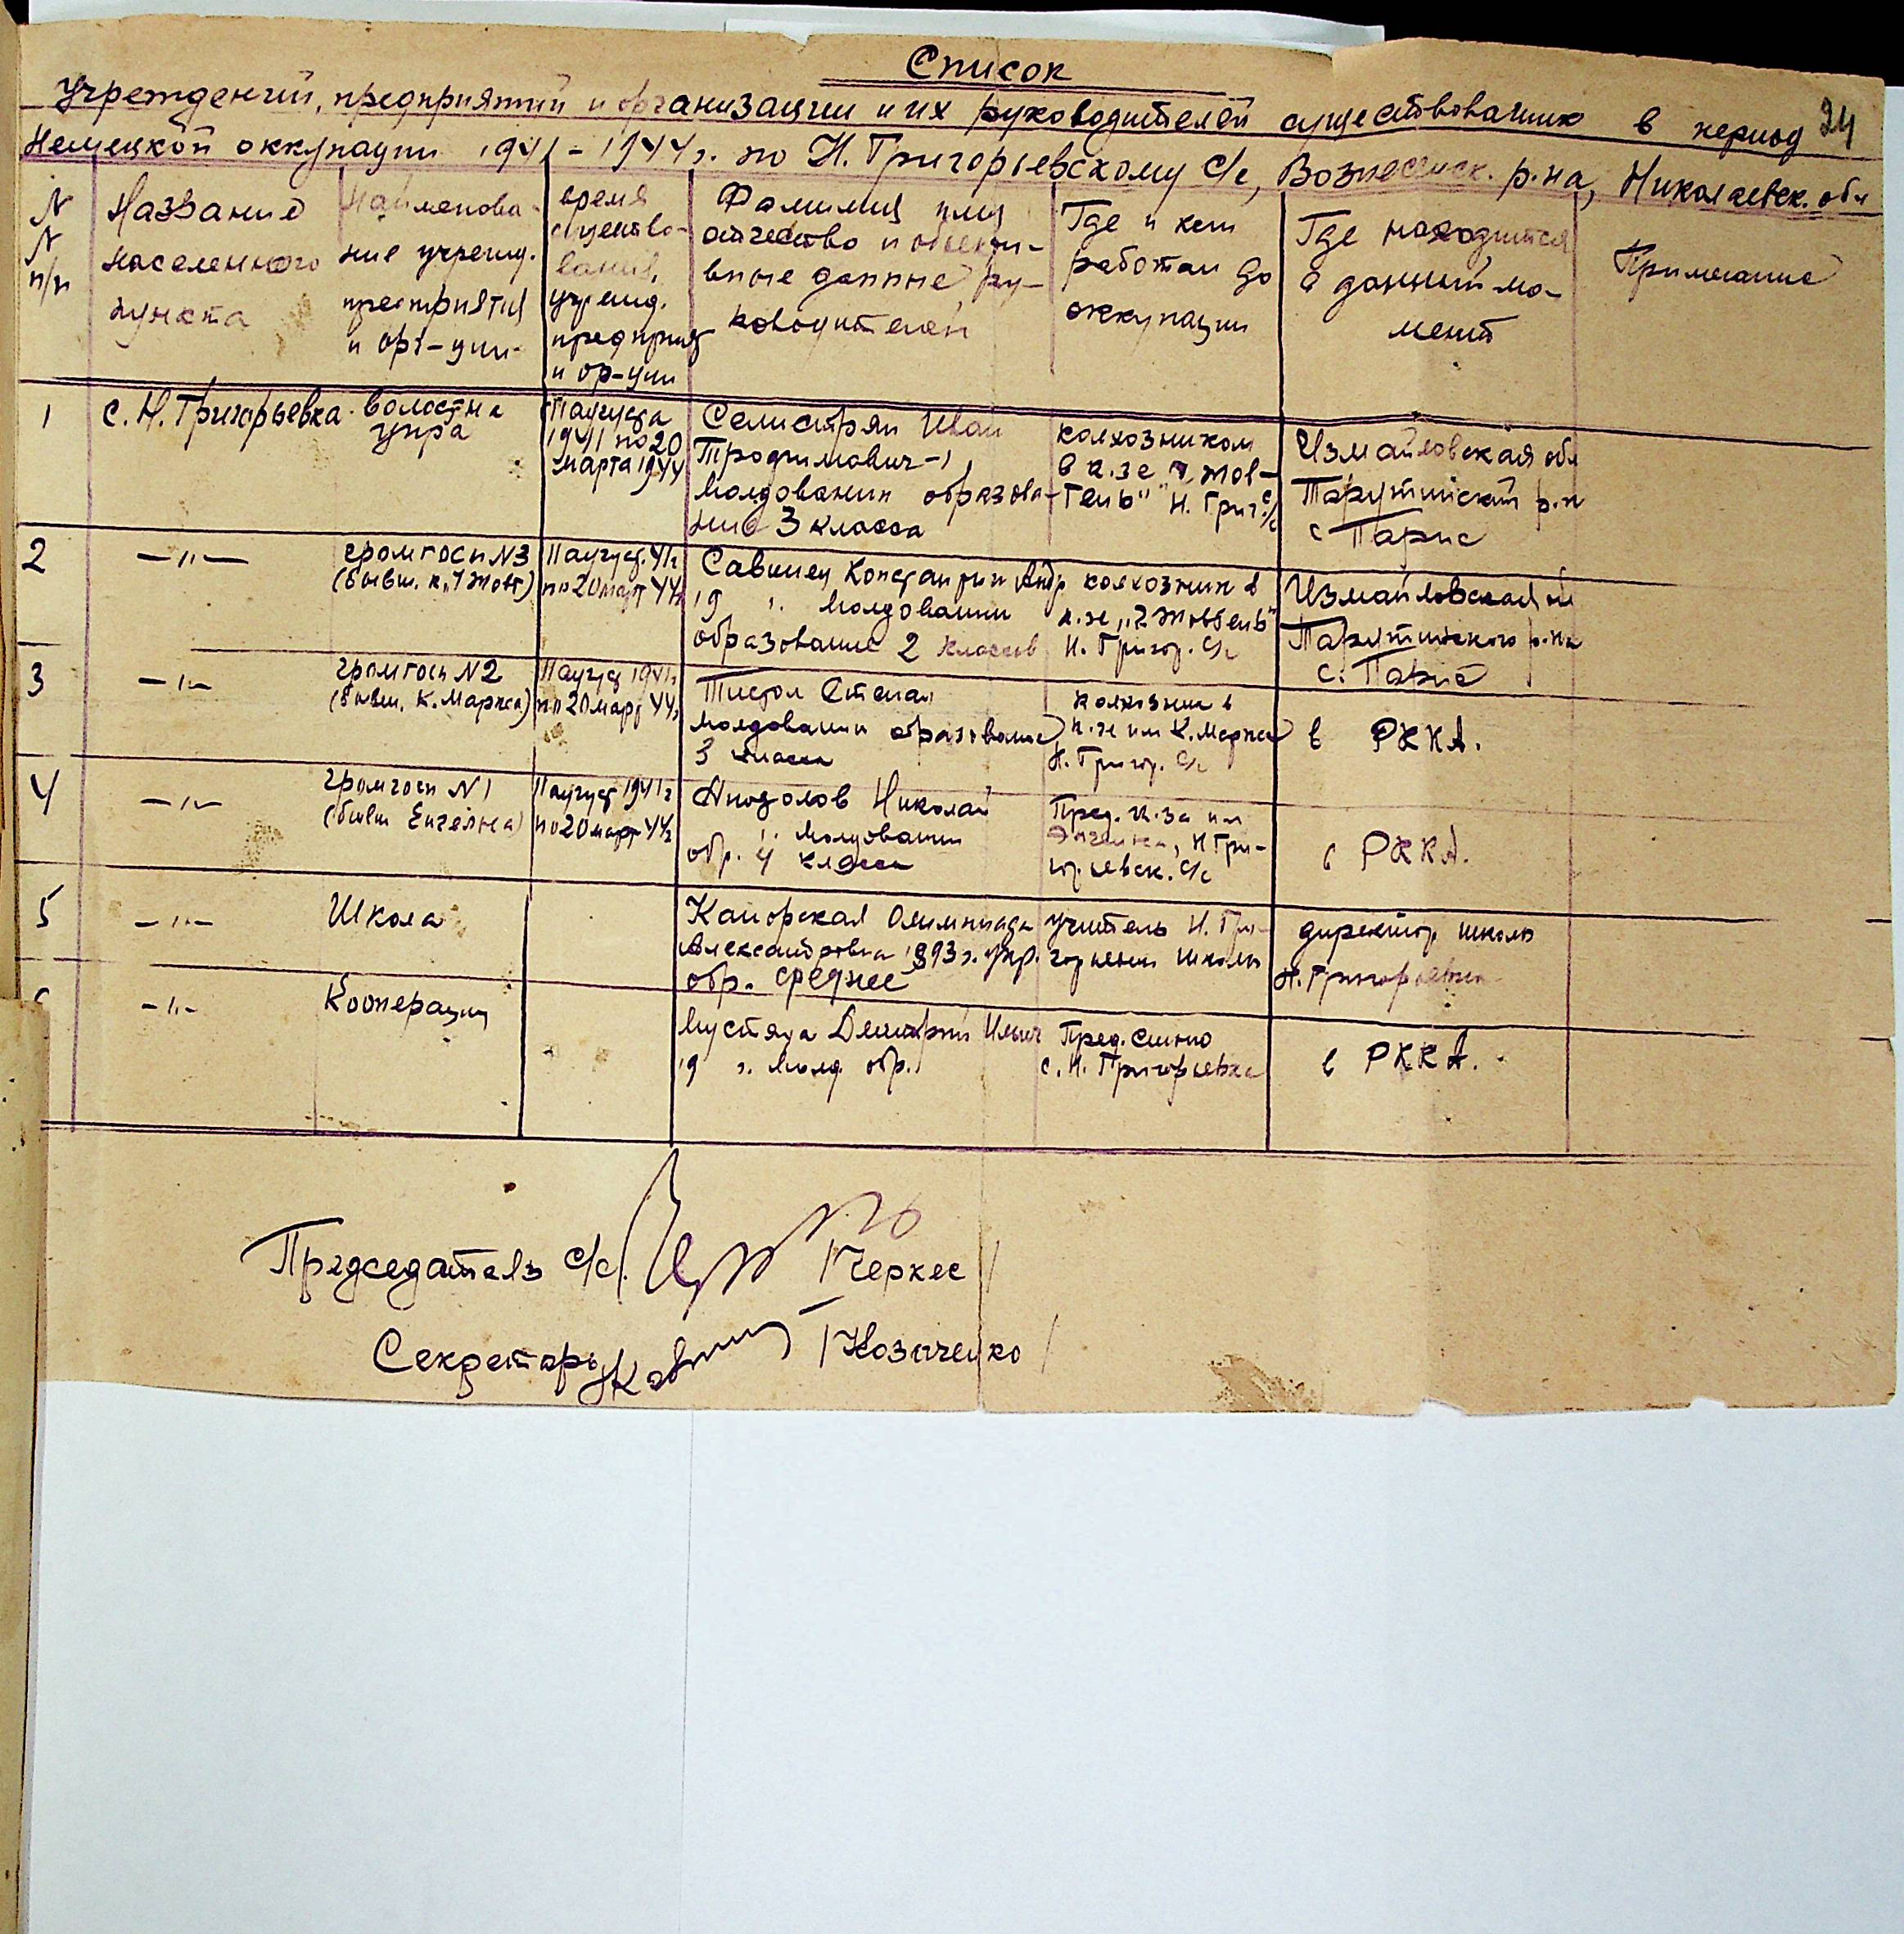 24
Список
Учреждений, предприятий и организации и их руководителей существовавших в период
Немецкой оккупации 1941-1944 г. по Н. Григорьевскому с/с, Вознесенск. р-на, Николаевск. обл
N N п/п
Название населенного пункта
Наименова-
ние учрежд.
предприятия
и орг-ции
время
существо-
вания,
учрежд.
предприят
и ор-ции
Фамилия имя
отчество и объекти-
вные данные ру-
ководителей
Где и кем
работал до
оккупации
Где находится
в данный мо-
мент
Примечание
1
с. Н. Григорьевка
волостна
упра
11 августа
1941 по 20
марта 1944
Селистрян Иван
Трофимович-
молдованин образова-
ние 3 класса
колхозником
в к-зе "1 жов-
тень" Н. Григ. с/с
Измайловская обл
Тарутинский р-н
с Парис
2
—"—
громгосп N3
(бывш. к. "1 жовт)
11 август. 41 г
по 20 март 44 г
Савинец Константин Андр
19 г. молдованин
образование 2 классов
колхозник в
к-зе „ жовтень"
Н. Григор. с/с
Измаиловская обл
Тарутинского р-на
с. Парис
3
—"—
громгосп N2
(бывш. К. Маркса)
11 август 1941 г
по 20 март 44 г
Тистол Степан
молдованин образование
3 класса
колхозник в
к-зе им К. Маркса
Н. Григор. с/с
в РККА.
4
—"—
громгосп N1
(бывш Енгельса)
11 август 1941 г
по 20 март 44 г
Анодолов Николай
молдованин
обр. 4 класса
Пред. к-за им
Энгельса, Н Гри-
горьевск. с/с
в РККА.
5
—"—
Школа
Каиорская Олимпиада
Александровна 1893 г. укр.
обр. среднее
учитель Н. Гри-
горьевск школы
директор школы
Н. Григорьевки
—"—
Кооперация
Мустяца Дмитрий Ильич
19 г. молд. обр.
Пред. сельпо
с. Н. Григорьевка
в РККА.
Председатель с/с /Черкес/
Секретарь /Козаченко/